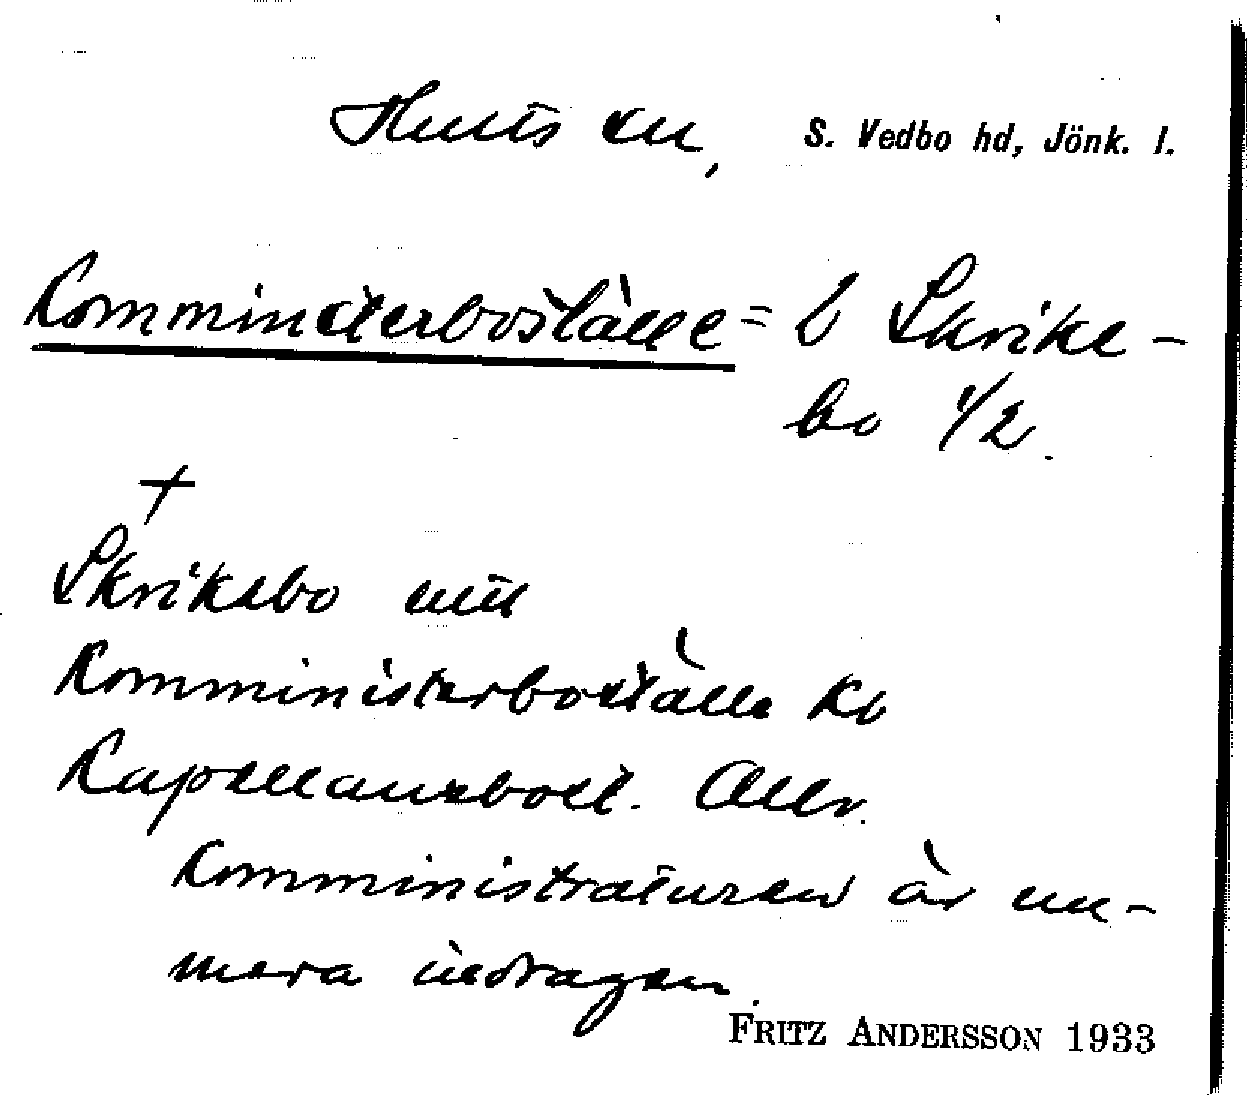 Hults sn, S. Vedbo hd, Jönk. l.
Komministerboställe = b Skrike-
bo 1/2.
+
Skrikebo mtl
Komministerboställe Kb
Kapellansbost. Allr.
Komministraturen är nu-
mera indragen.
FRITZ ANDERSSON 1933